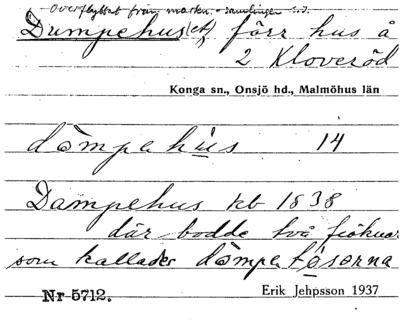 Överflyttat från markn.-samlingen
Dumpehus(et) förr hus å
2 Kloveröd
Konga sn., Onsjö hd., Malmöhus län
dömpehus 14
Dampehus kb 1838
där bodde två
som kallades dömpetösorna
Nr 5712. Erik Jehpsson 1937